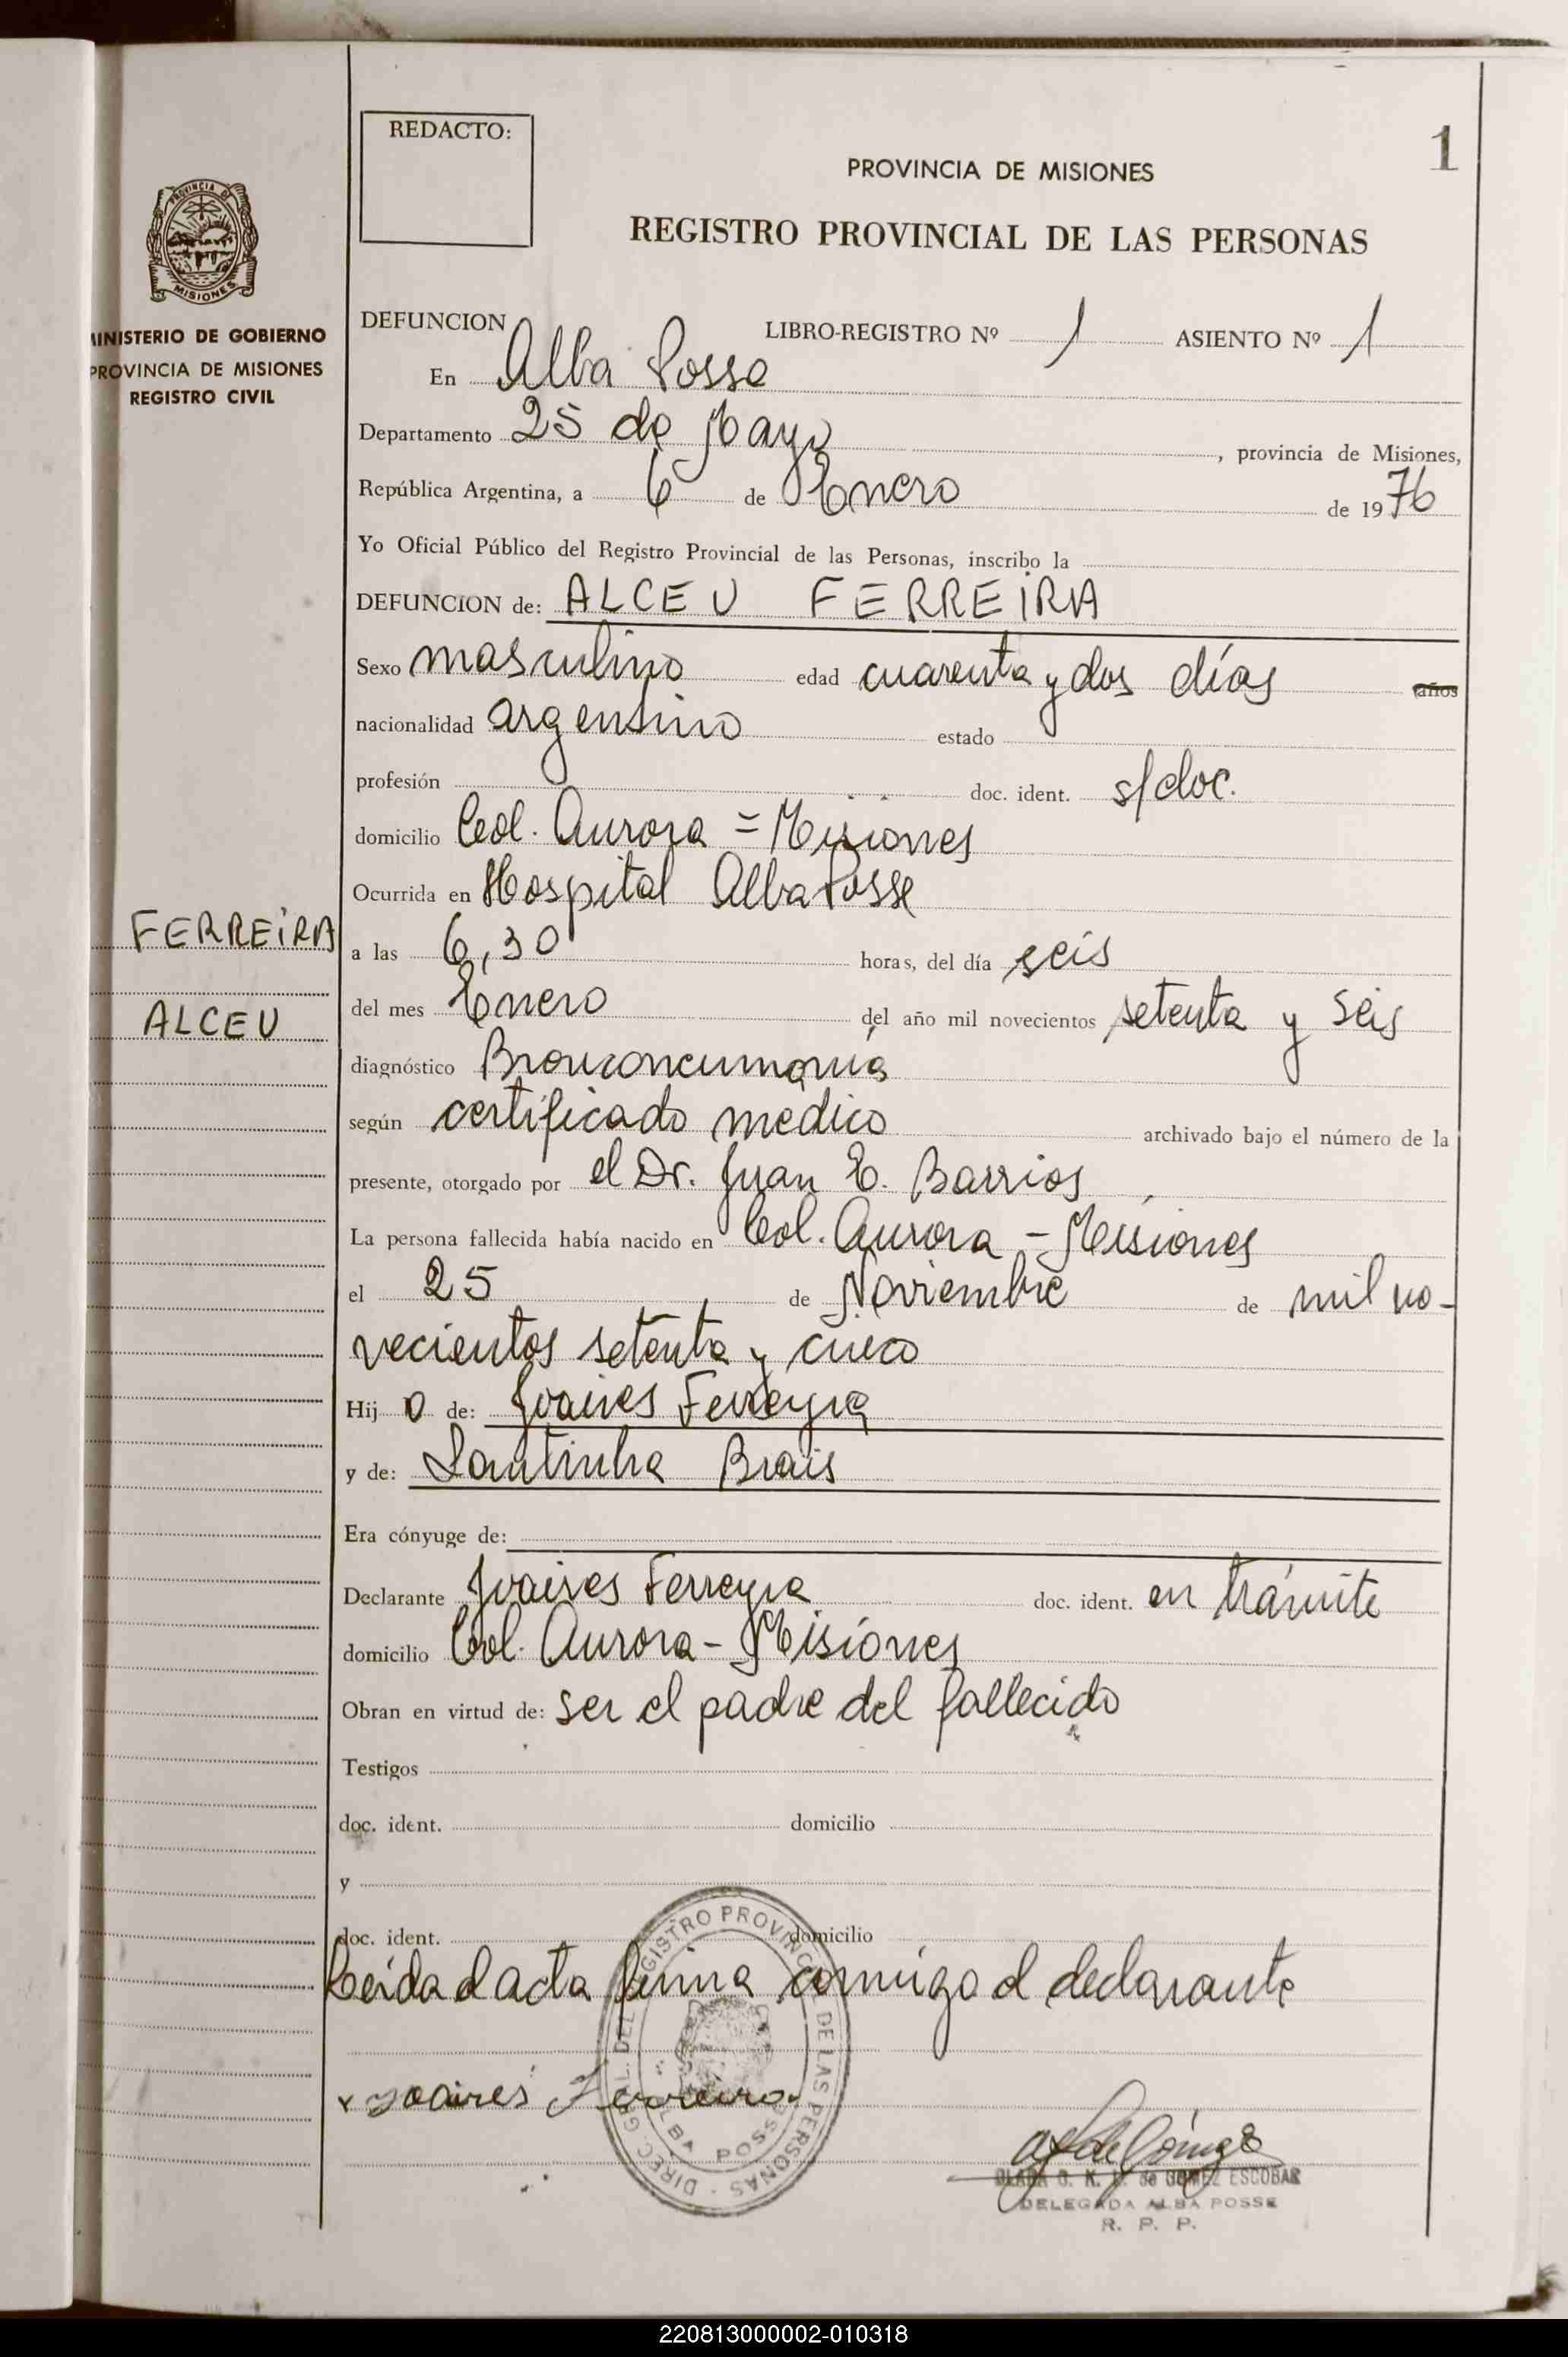 REDACTO:
1
PROVINCIA DE MISIONES
REGISTRO PROVINCIAL DE LAS PERSONAS
PROVINCIA DE
MISIONES
MINISTERIO DE GOBIERNO
PROVINCIA DE MISIONES
REGISTRO CIVIL
DEFUNCION LIBRO-REGISTRO Nº 1 ASIENTO Nº 1
En Alba Posse
Departamento 25 de Mayo, provincia de Misiones,
República Argentina, a 6 de Enero de 1976
Yo Oficial Público del Registro Provincial de las Personas, inscribo la
DEFUNCION de: ALCEU FERREIRA
Sexo masculino edad cuarenta y dos días años
nacionalidad argentino estado
profesión doc. ident. s/doc.
domicilio Col. Aurora = Misiones
Ocurrida en Hospital Alba Posse
FERREIRA
a las 6,30 horas, del día seis
ALCEU
del mes Enero del año mil novecientos setenta y seis
diagnóstico Bronconeumonia
según certificado medico archivado bajo el número de la
presente, otorgado por el Dr. Juan E. Barrios
La persona fallecida había nacido en Col. Aurora - Misiones
el 25 de Noviembre de mil no-
vecientos setenta y cinco
Hij o de: Joaires Ferreyra
y de: Santinha Brais
Era cónyuge de:
Declarante Joaires Ferreyra doc. ident. en trámite
domicilio Col. Aurora - Misiones
Obran en virtud de: ser el padre del fallecido
Testigos
doc. ident. domicilio
y
doc. ident. domicilio
Leída el acta firma conmigo el declarante
DIREC. GRAL. DEL REGISTRO PROVINCIAL DE LAS PERSONAS
ALBA POSSE
x Joaires Ferreira
de GOMEZ ESCOBAR
DELEGADA ALBA POSSE
R. P. P.
220813000002-010318